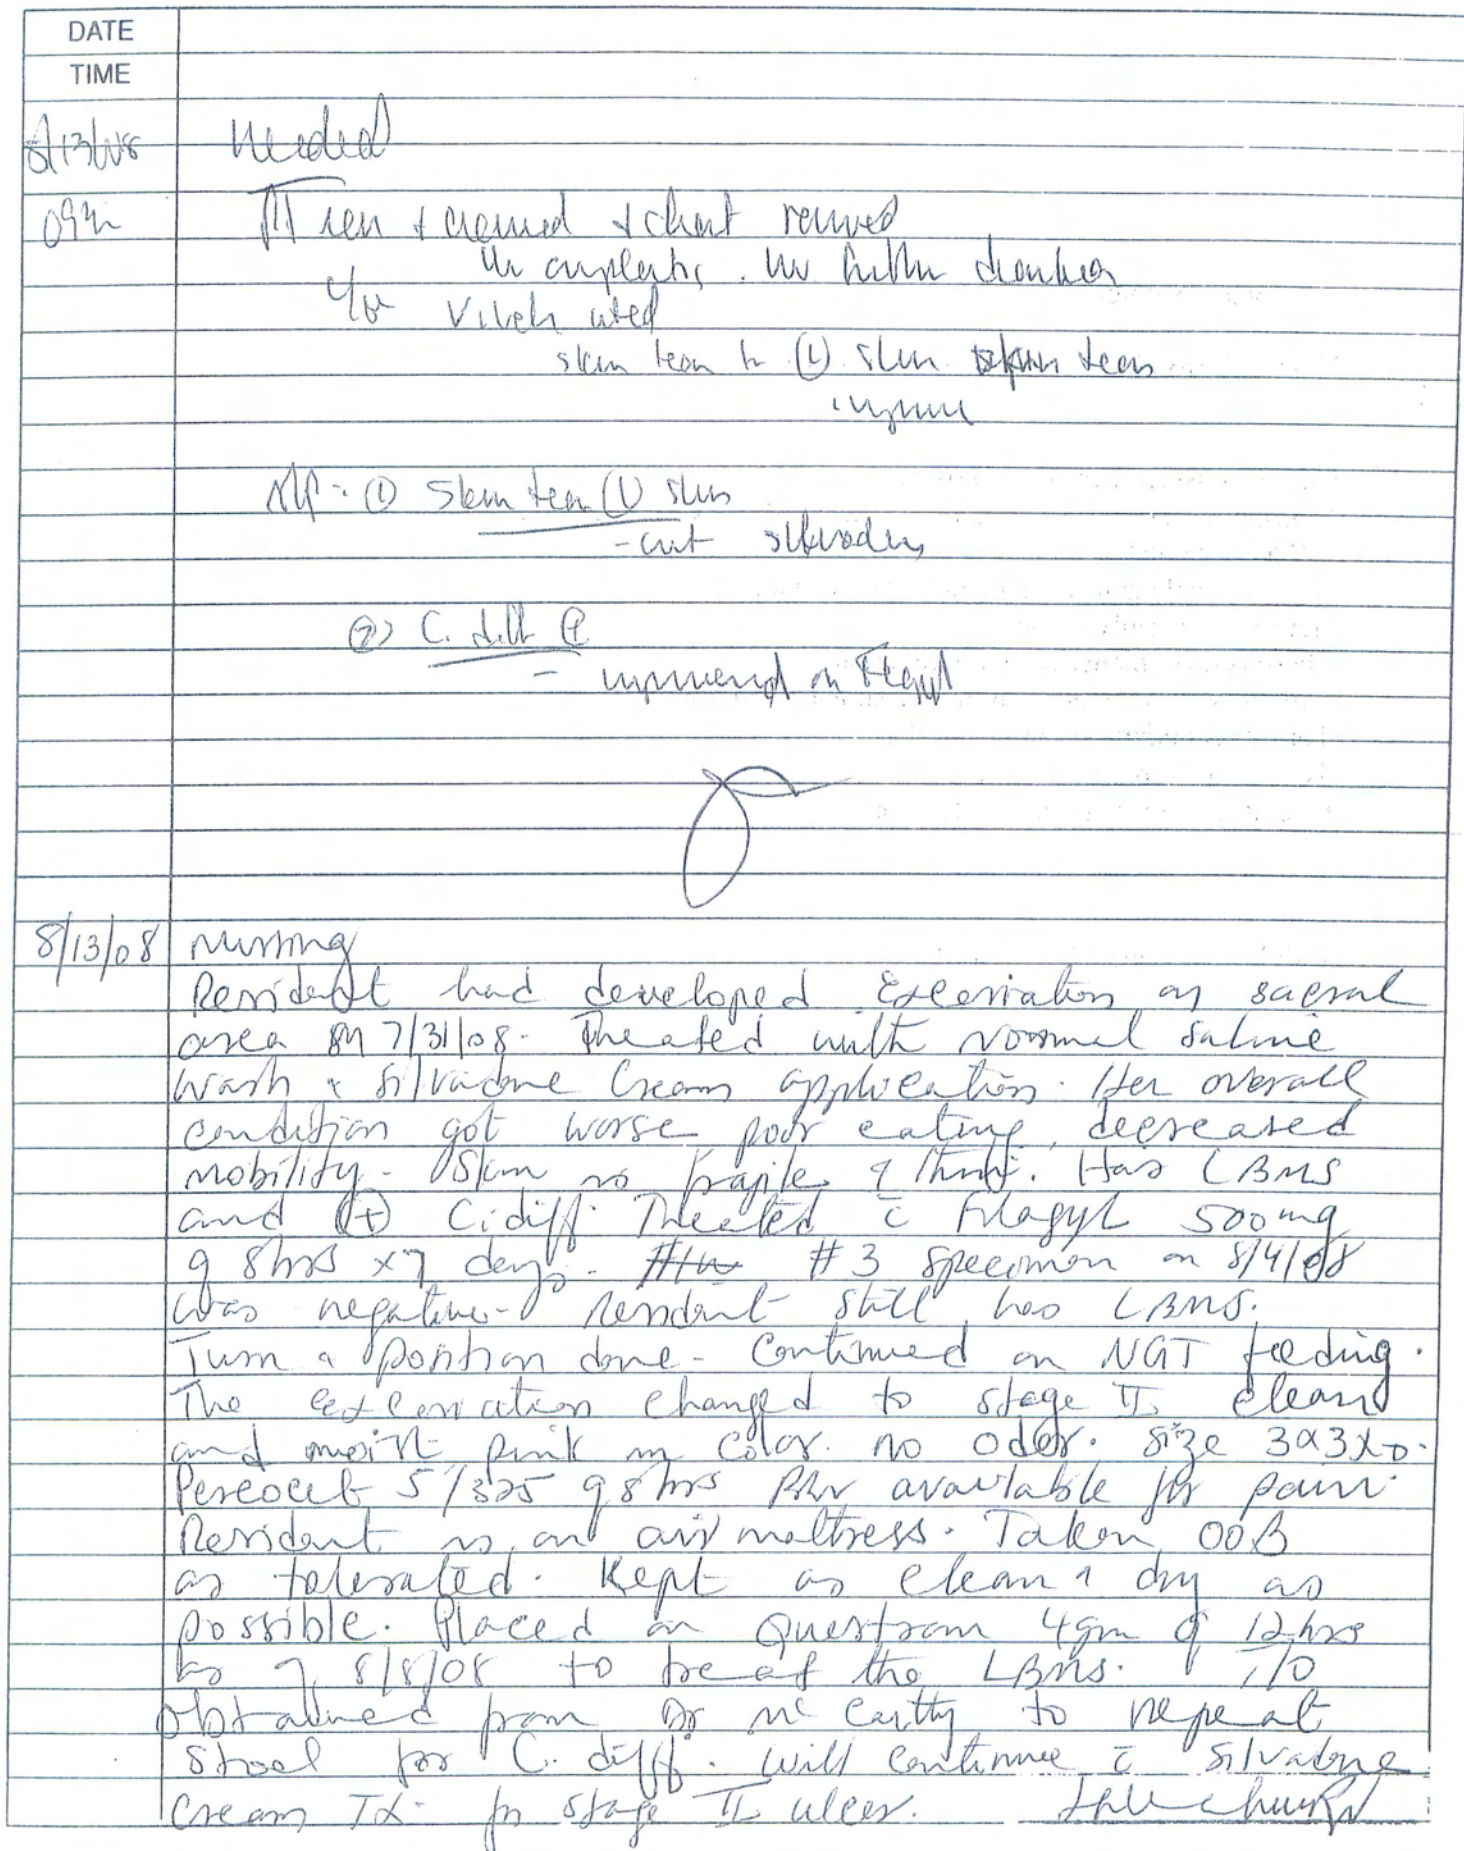 DATE
TIME
8/13/08 Medical
09
Pt seen + examined + chart reviewed
No complaints. No further diarrhea
Vitals noted
skin tear to (L) shin skin tear
improve
A/P: (1) Skin tear (L) shin
- cont silvadene
(2) C. diff
- improved on Flagyl
8/13/08 Nursing
Resident had developed Excoriation on sacral
area on 7/31/08. Treated with normal saline
wash & silvadene Cream application. Her overall
condition got worse poor eating, decreased
mobility. Skin is fragile & thin. Has LBMS
and (+) C. diff. Treated c̄ Flagyl 500 mg
q 8hrs x7 days. #3 specimen on 8/4/08
was negative. Resident still has LBMS.
Turn & position done. Continued on NGT feeding.
The excoriation changed to stage II, clean
and moist pink in color. no odor. Size 3x3x0.
Percocet 5/325 q 8 hrs PRN available for pain.
Resident is on air mattress. Taken OOB
as tolerated. Kept as clean & dry as
possible. Placed on Questran 4gm q 12 hrs
as of 8/8/08 to treat the LBMS. T/O
obtained from Dr McCarthy to repeat
stool for C. diff. Will continue c̄ silvadene
Cream TX for stage II ulcer. RN